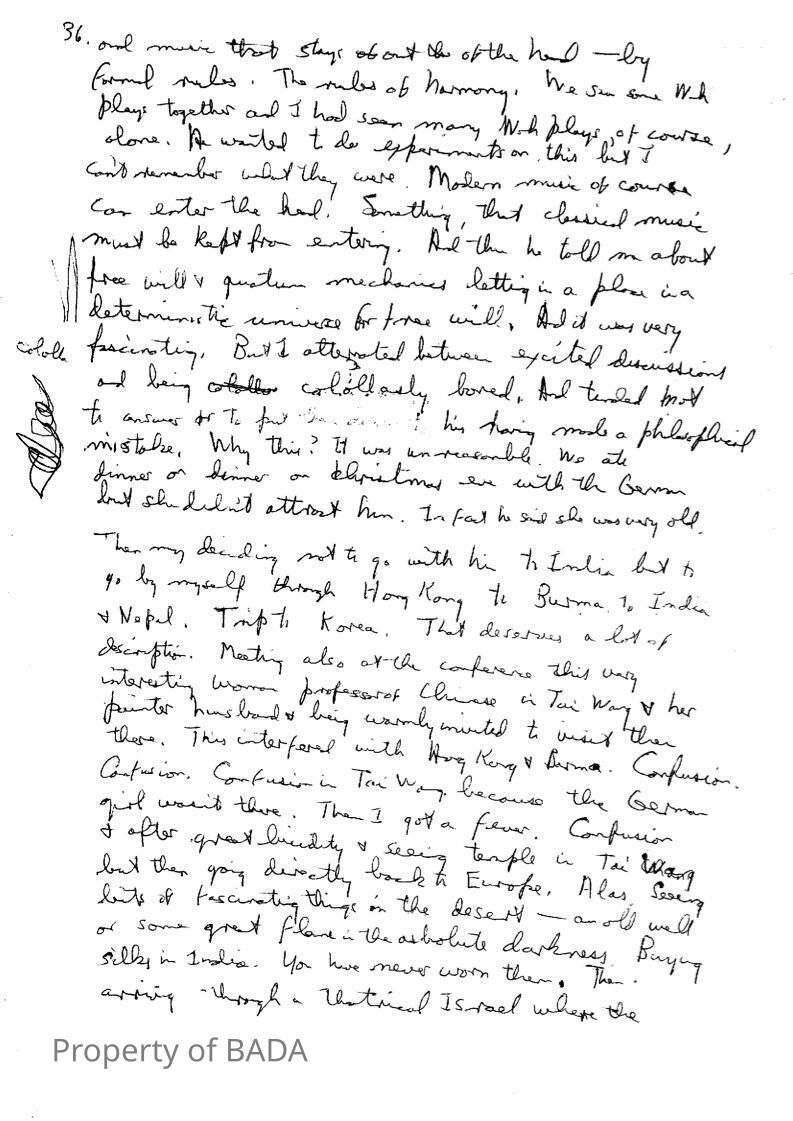 36.
and music that stays about the of the head — by
formal rules. The rules of harmony. We saw some Noh
plays together and I had seen many Noh plays, of course,
alone. He wanted to do experiments on this but I
can't remember what they were. Modern music of course
can enter the head. Something, that classical music
must be kept from entering. And then he told me about
free will & quantum mechanics letting in a place in a
deterministic universe for free will. And it was very
fascinating. But I alternated between excited discussions
cololla
and being colollosly bored. And tended not
to answer or to put his having made a philosophical
mistake. Why this? It was unreasonable. We ate
dinner or dinner on Christmas eve with the German
but she didn't attract him. In fact he said she was very old.
Then my deciding not to go with him to India but to
go by myself through Hong Kong to Burma to India
& Nepal. Trip to Korea. That deserves a lot of
description. Meeting also at the conference this very
interesting woman professor of Chinese in Tai Wang & her
painter husband & being warmly invited to visit them
there. This interfered with Hong Kong & Burma. Confusion.
Confusion. Confusion in Tai Wang because the German
girl wasn't there. Then I got a fever. Confusion
& after great lucidity & seeing temple in Tai Wang
but then going directly back to Europe. Alas. Seeing
bits of fascinating things in the desert — an old well
or some great flame in the asbolute darkness. Buying
silks in India. You have never worn them. Then
arriving through a thatrical Israel where the
Property of BADA